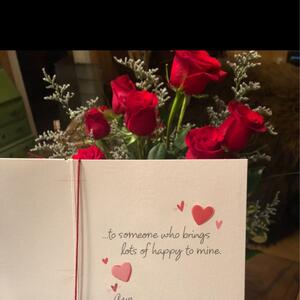 ...to someone who brings
lots of happy to mine.